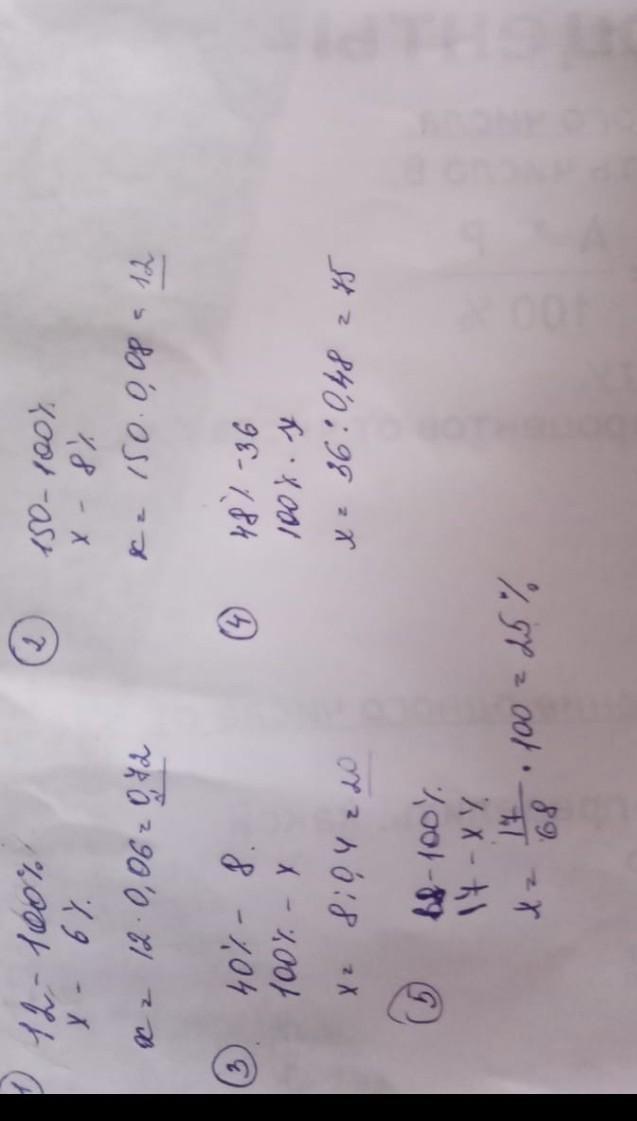 1
12 - 100%
x - 6%
x = 12 · 0,06 = 0,72
2
150 - 100%
x - 8%
x = 150 · 0,08 = 12
3
40% - 8.
100% - x
x = 8 : 0,4 = 20
4
48% - 36
100% - x
x = 36 : 0,48 = 75
5
68 - 100%
17 - x%
x = 17/68 · 100 = 25%